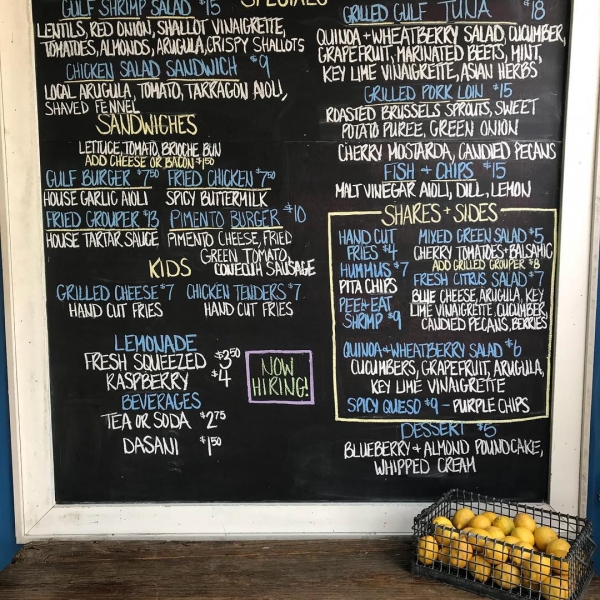 SPECIALS
GULF SHRIMP SALAD $15
LENTILS, RED ONION, SHALLOT VINAIGRETTE,
TOMATOES, ALMONDS, ARUGULA, CRISPY SHALLOTS
CHICKEN SALAD SANDWICH $9
LOCAL ARUGULA, TOMATO, TARRAGON AIOLI,
SHAVED FENNEL
SANDWICHES
LETTUCE, TOMATO, BRIOCHE BUN
ADD CHEESE OR BACON $1.50
GULF BURGER $7.50 FRIED CHICKEN $7.50
HOUSE GARLIC AIOLI SPICY BUTTERMILK
FRIED GROUPER $13 PIMENTO BURGER $10
HOUSE TARTAR SAUCE PIMENTO CHEESE, FRIED
GREEN TOMATO,
CONECUH SAUSAGE
KIDS
GRILLED CHEESE $7 CHICKEN TENDERS $7
HAND CUT FRIES HAND CUT FRIES
LEMONADE
FRESH SQUEEZED $3.50
RASPBERRY $4
BEVERAGES
TEA OR SODA $2.75
DASANI $1.50
NOW
HIRING!
GRILLED GULF TUNA $18
QUINOA + WHEATBERRY SALAD, CUCUMBER,
GRAPEFRUIT, MARINATED BEETS, MINT,
KEY LIME VINAIGRETTE, ASIAN HERBS
GRILLED PORK LOIN $15
ROASTED BRUSSELS SPROUTS, SWEET
POTATO PUREE, GREEN ONION
CHERRY MOSTARDA, CANDIED PECANS
FISH + CHIPS $15
MALT VINEGAR AIOLI, DILL, LEMON
SHARES + SIDES
HAND CUT
FRIES $4
HUMMUS $7
PITA CHIPS
PEEL + EAT
SHRIMP $9
MIXED GREEN SALAD $5
CHERRY TOMATOES + BALSAMIC
ADD GRILLED GROUPER $8
FRESH CITRUS SALAD $7
BLUE CHEESE, ARUGULA, KEY
LIME VINAIGRETTE, CUCUMBER,
CANDIED PECANS, BERRIES
QUINOA + WHEATBERRY SALAD $6
CUCUMBERS, GRAPEFRUIT, ARUGULA,
KEY LIME VINAIGRETTE
SPICY QUESO $9 - PURPLE CHIPS
DESSERT $5
BLUEBERRY + ALMOND POUNDCAKE,
WHIPPED CREAM